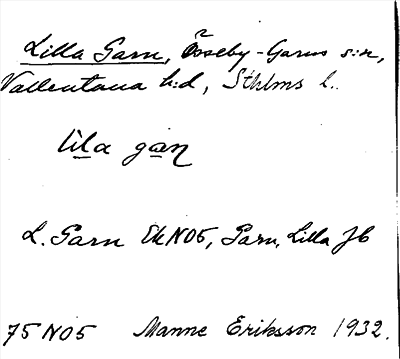 Lilla Garn, Össeby-Garns s:n,
Vallentuna h:d, Sthlms l..
lila gaṇ
L. Garn Ek NO5, Garn, Lilla Jb
75 NO5 Manne Eriksson 1932.